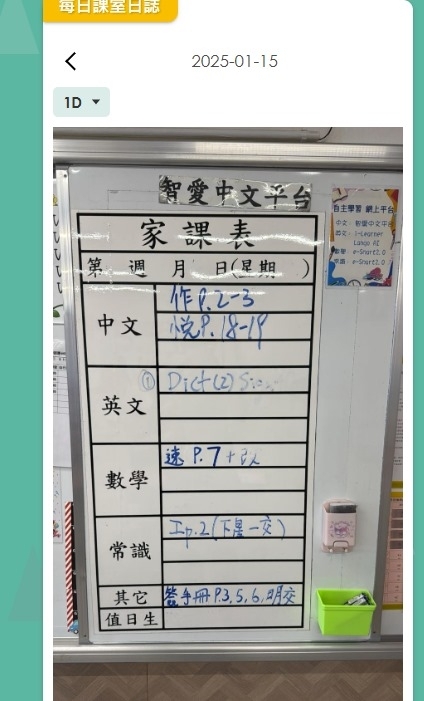 每日課室日誌
2025-01-15
1D
智愛中文平台
自主學習 網上平台
中文: 智愛中文平台
英文: i-Learner
Lango AI
數學: e-Smart2.0
常識: e-Smart2.0
家課表
第 週 月 日(星期 )
中文
作P.2-3
悦P.18-19
英文
① Dict(2)
數學
速 P.7+改
常識
工p.2(下星一交)
其它
簽手冊P.3,5,6,明交
值日生